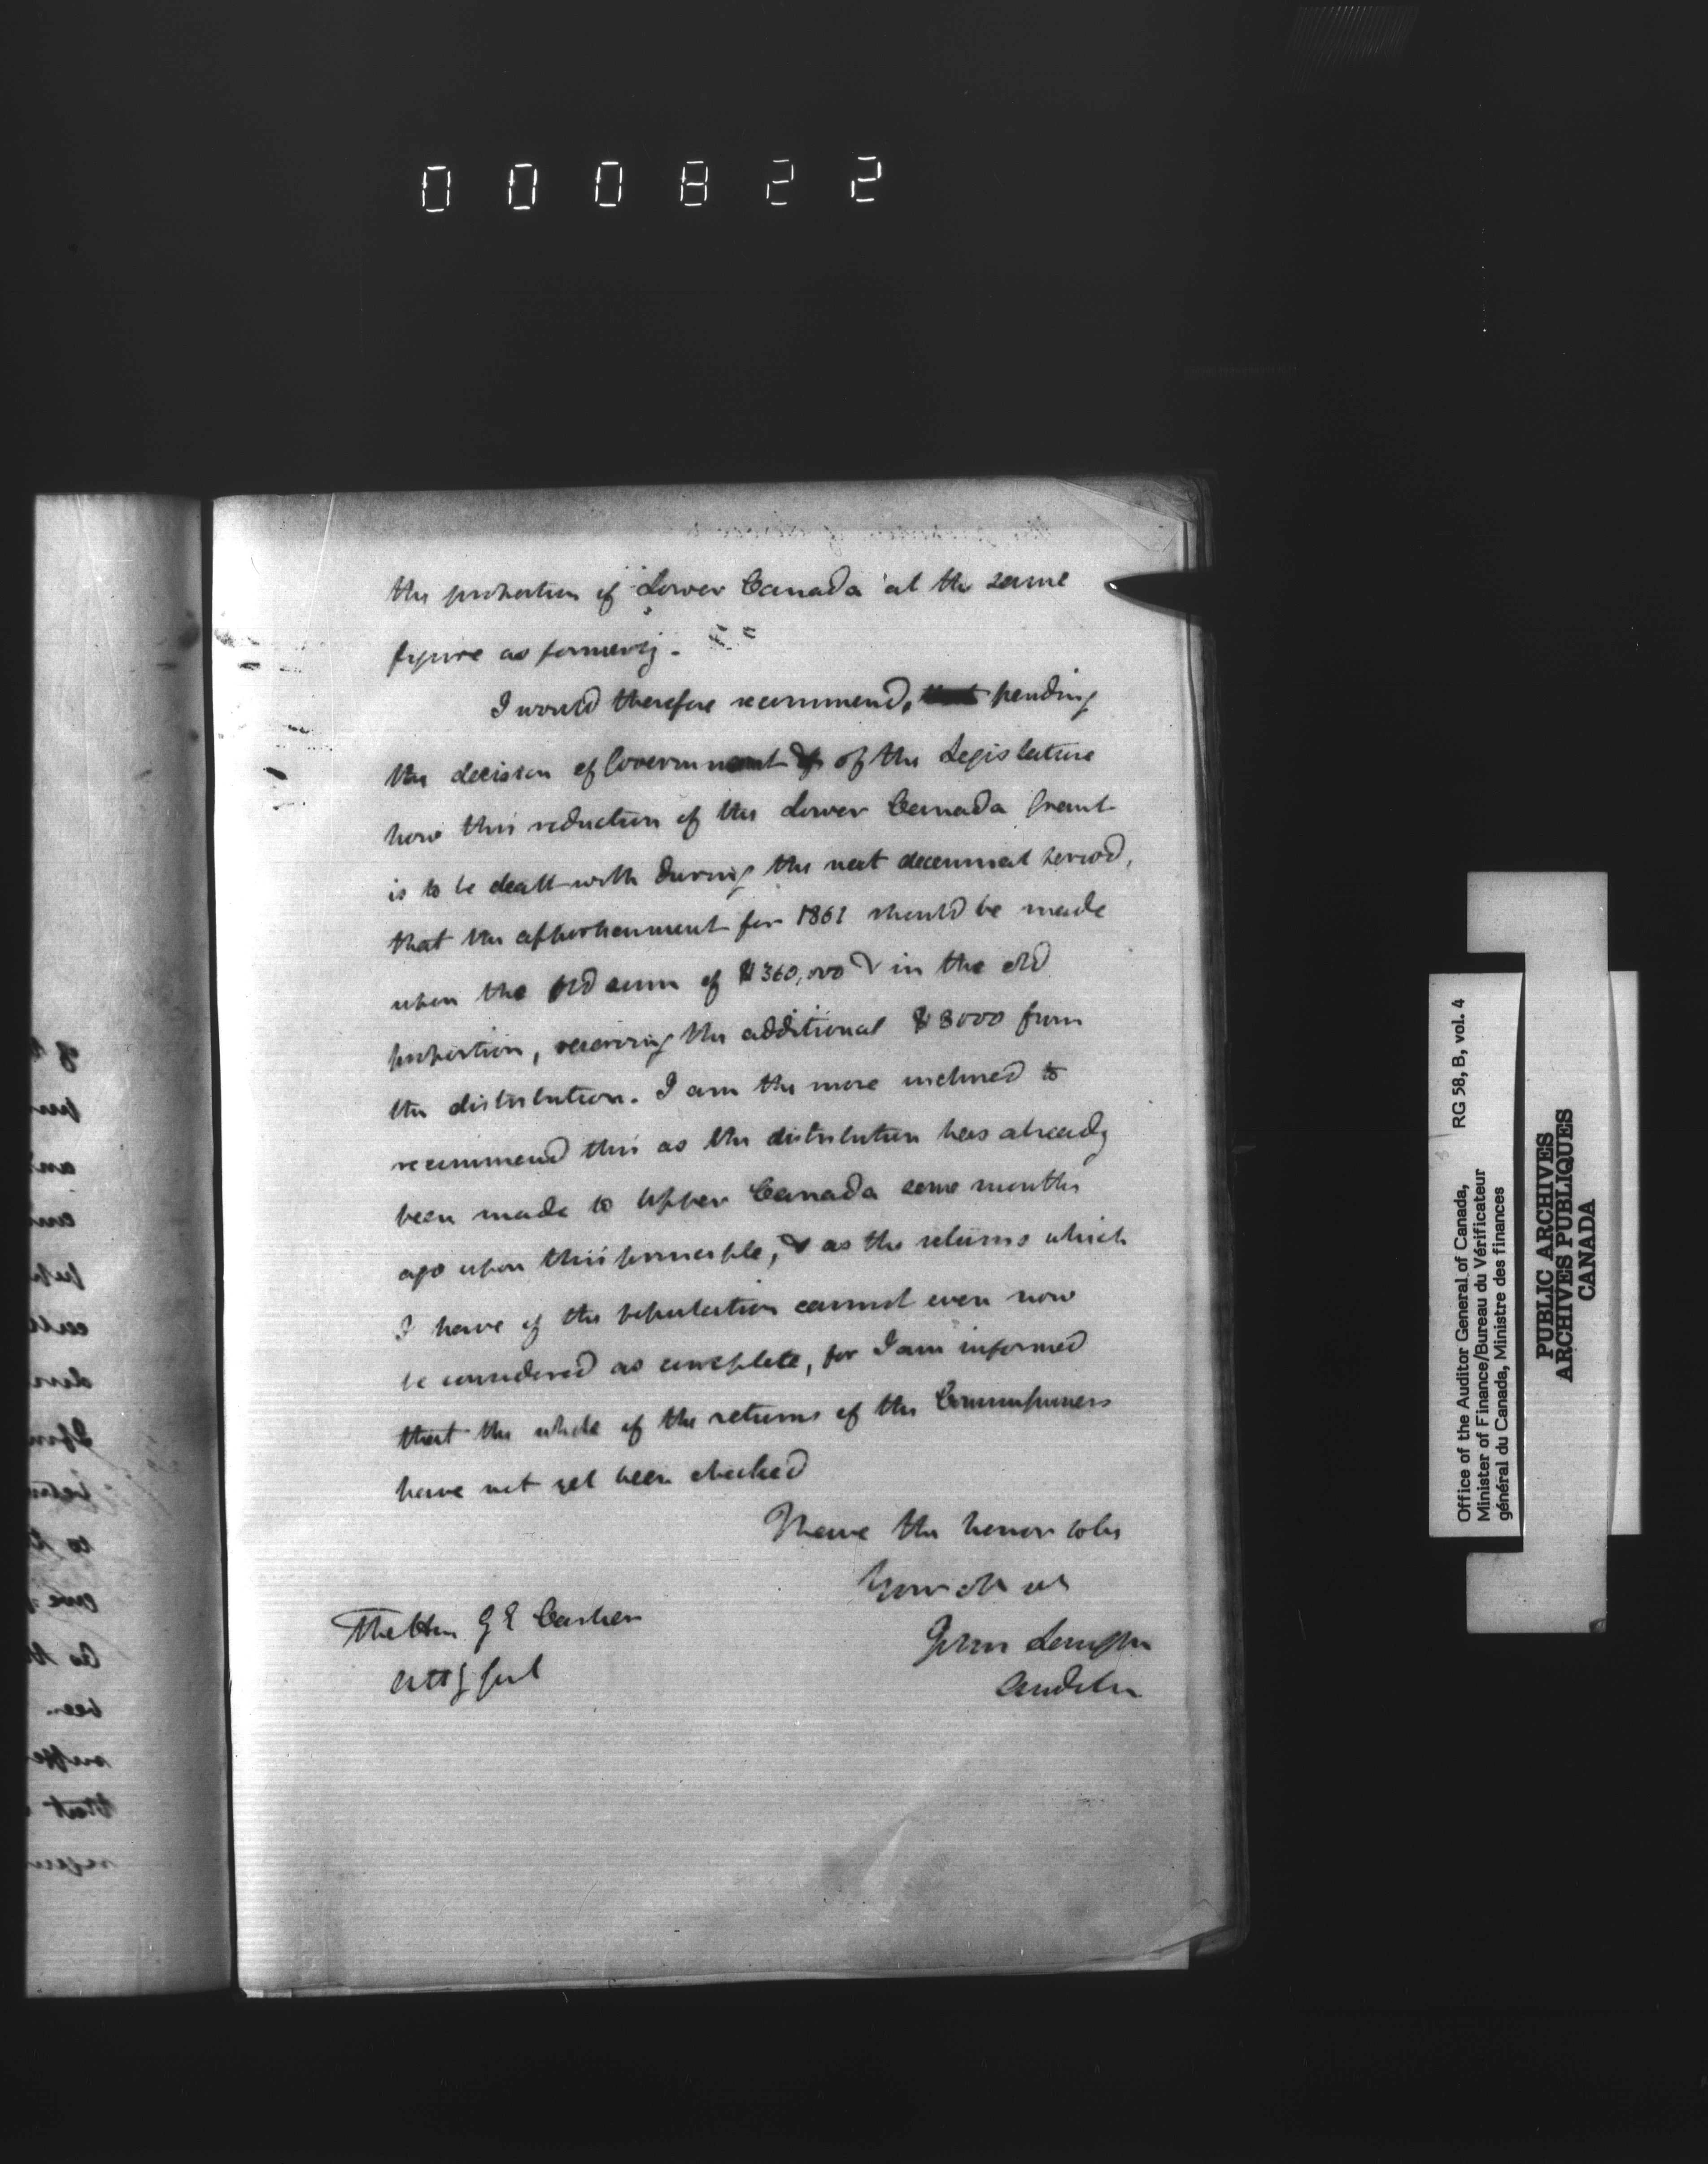 000822
the proportion of Lower Canada at the same
figure as formerly.
I would therefore recommend, that pending
the decision of Government & of the Legislature
how this reduction of the Lower Canada Grant
is to be dealt with during the next decennial period,
that the apportionment for 1861 should be made
upon the old sum of $360,000 & in the old
proportion, reserving the additional $8000 from
the distribution. I am the more inclined to
recommend this as the distribution has already
been made to Upper Canada some months
ago upon this principle, & as the returns which
I have of the population cannot even now
be considered as complete, for I am informed
that the whole of the returns of the Commissioners
have not yet been checked
I have the honor to be
Your
John Langton
Auditor
The Hon G E Cartier
Atty Genl
Office of the Auditor General of Canada, RG 58, B, vol. 4
Minister of Finance/Bureau du Vérificateur
général du Canada, Ministre des finances
PUBLIC ARCHIVES
ARCHIVES PUBLIQUES
CANADA